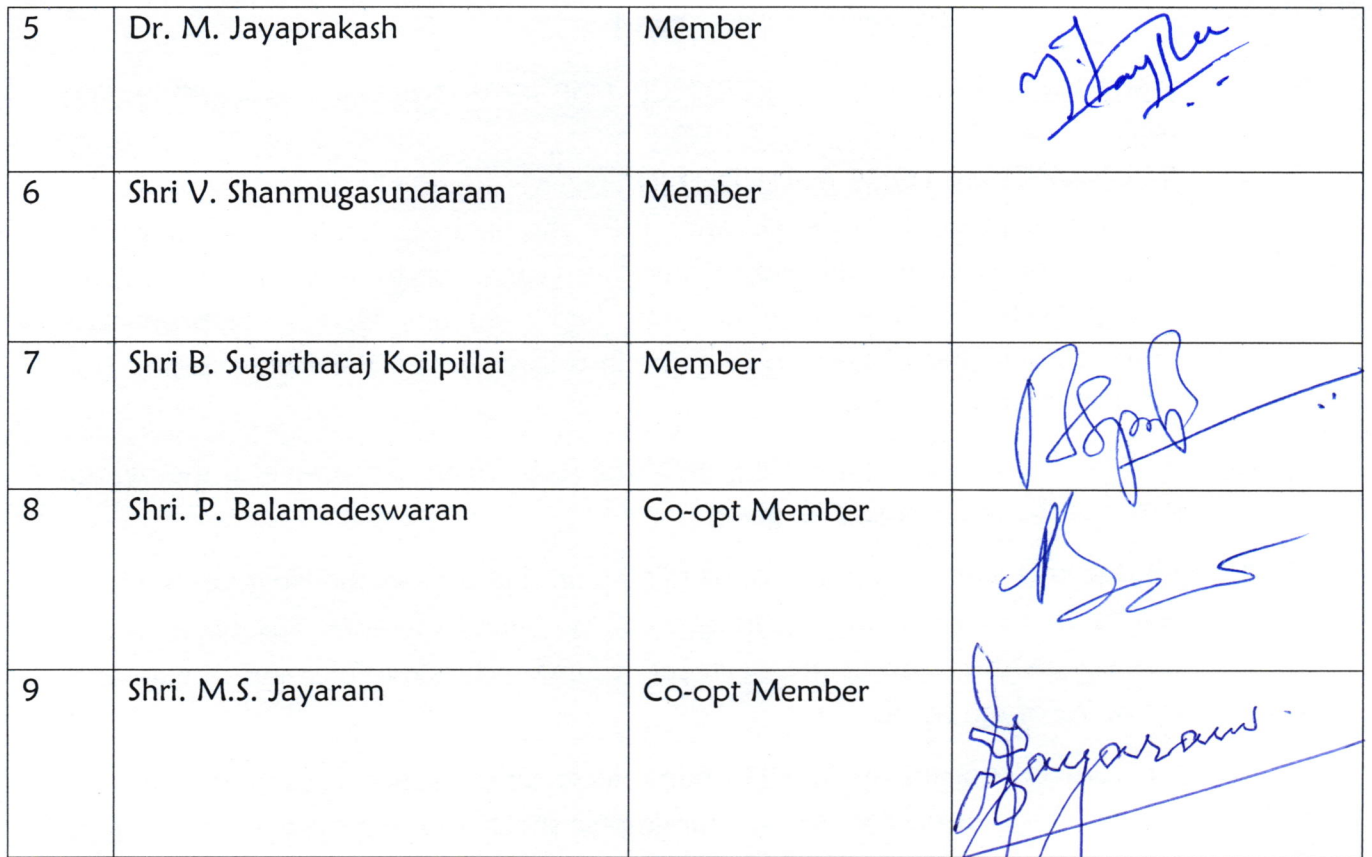 5 Dr. M. Jayaprakash Member
6 Shri V. Shanmugasundaram Member
7 Shri B. Sugirtharaj Koilpillai Member
8 Shri. P. Balamadeswaran Co-opt Member
9 Shri. M.S. Jayaram Co-opt Member Jayaram